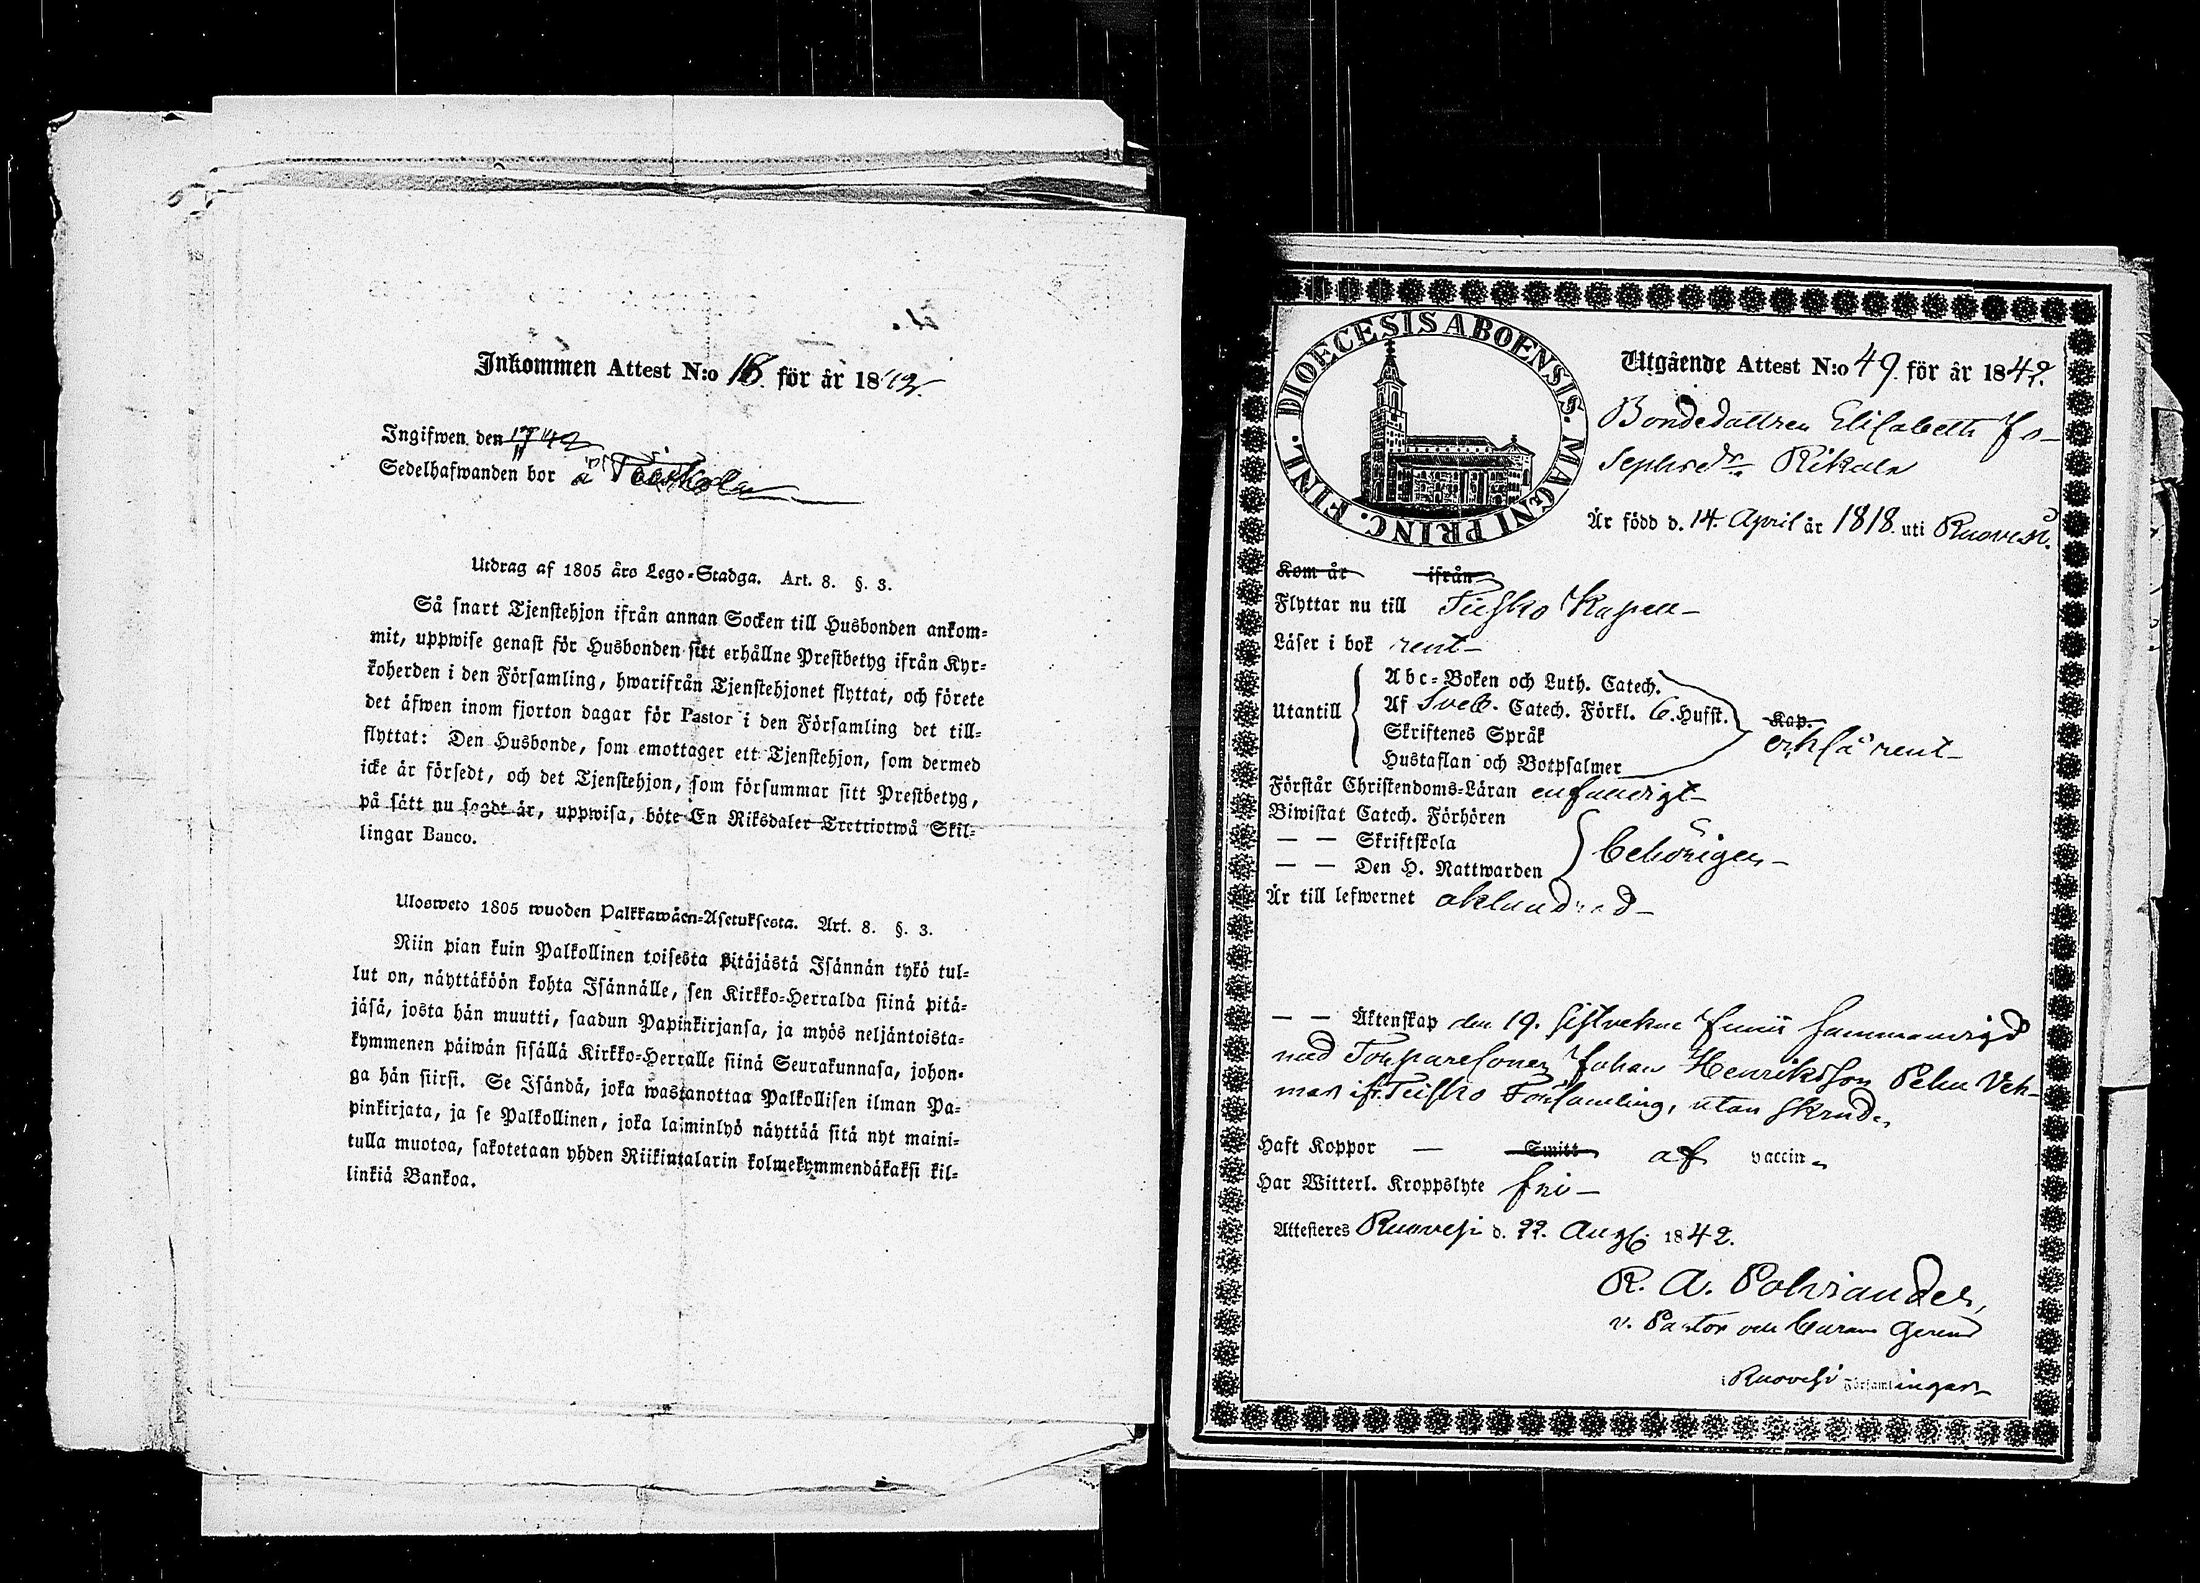 Inkommen Attest N:o 16. för år 1842.
Ingifwen den
Sedelhafwanden bor å Teiskola
Utdrag af 1805 års Lego-Stadga. Art. 8. §. 3.
Så snart Tjenstehjon ifrån annan Socken till Husbonden ankom-
mit, uppwise genast för Husbonden sitt erhållne Prestbetyg ifrån Kyr-
koherden i den Församling, hwarifrån Tjenstehjonet flyttat, och förete
det äfwen inom fjorton dagar för Pastor i den Församling det till-
flyttat: Den Husbonde, som emottager ett Tjenstehjon, som dermed
icke är försedt, och det Tjenstehjon, som försummar sitt Prestbetyg,
på sätt nu sagdt är, uppwisa, böte En Riksdaler Trettiotwå Skil-
lingar Banco.
Ulosweto 1805 wuoden Palkkawäen-Asetuksesta. Art. 8. §. 3.
Niin pian kuin Palkollinen toisesta pitäjästä Isännän tykö tul-
lut on, näyttäköön kohta Isännälle, sen Kirkko-Herralda siinä pitä-
jäsä, josta hän muutti, saadun Papinkirjansa, ja myös neljäntoista-
kymmenen päiwän sisällä Kirkko-Herralle siinä Seurakunnasa, johon-
ga hän siirsi. Se Isändä, joka wastanottaa Palkollisen ilman Pa-
pinkirjata, ja se Palkollinen, joka laiminlyö näyttää sitä nyt maini-
tulla muotoa, sakotetaan yhden Riikintalarin kolmekymmendäkaksi kil-
linkiä Bankoa.
DIOECESIS ABOENSIS. MAGNI PRINC. FINL.
Utgående Attest N:o 49. för år 1842.
Bondedottren Elisabeth Jo-
sephsdr. Rikala
Är född d. 14. April år 1818. uti Ruovesi.
Kom år ifrån
Flyttar nu till Teisko Kapell
Läser i bok rent
Utantill
Abc-Boken och Luth. Catech.
Af Sveb. Catech. Förkl. 6. Hufst. Kap.
Skriftenes Språk
Hustaflan och Botpsalmer
också rent
Förstår Christendoms-Läran enfaldigt
Biwistat Catech. Förhören
— — Skriftskola
— — Den H. Nattwarden
behörigen
Är till lefwernet oklandrad
— — Äktenskap den 19. sistvekne Junii sammanvigd
med Torparesonen Johan Henriksson Veh-
mas ifr. Teisko Församling, utan skrud.
Haft Koppor — Smitt af vaccin
Har Witterl. Kroppslyte fri
Attesteres Ruovesi d. 22. Aug. 1842.
R. A. Polviander,
v. Pastor och Curam Gerens
i Ruovesi Församlingar